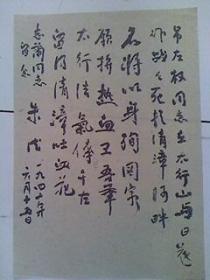 吊左权同志在太行山与日寇
作战战死於清漳河畔
名将以身殉国家
愿拚热血卫吾华
太行浩气传千古
留得清漳吐血花
志蘭同志
留念
朱德
一九四二年
六月十五日